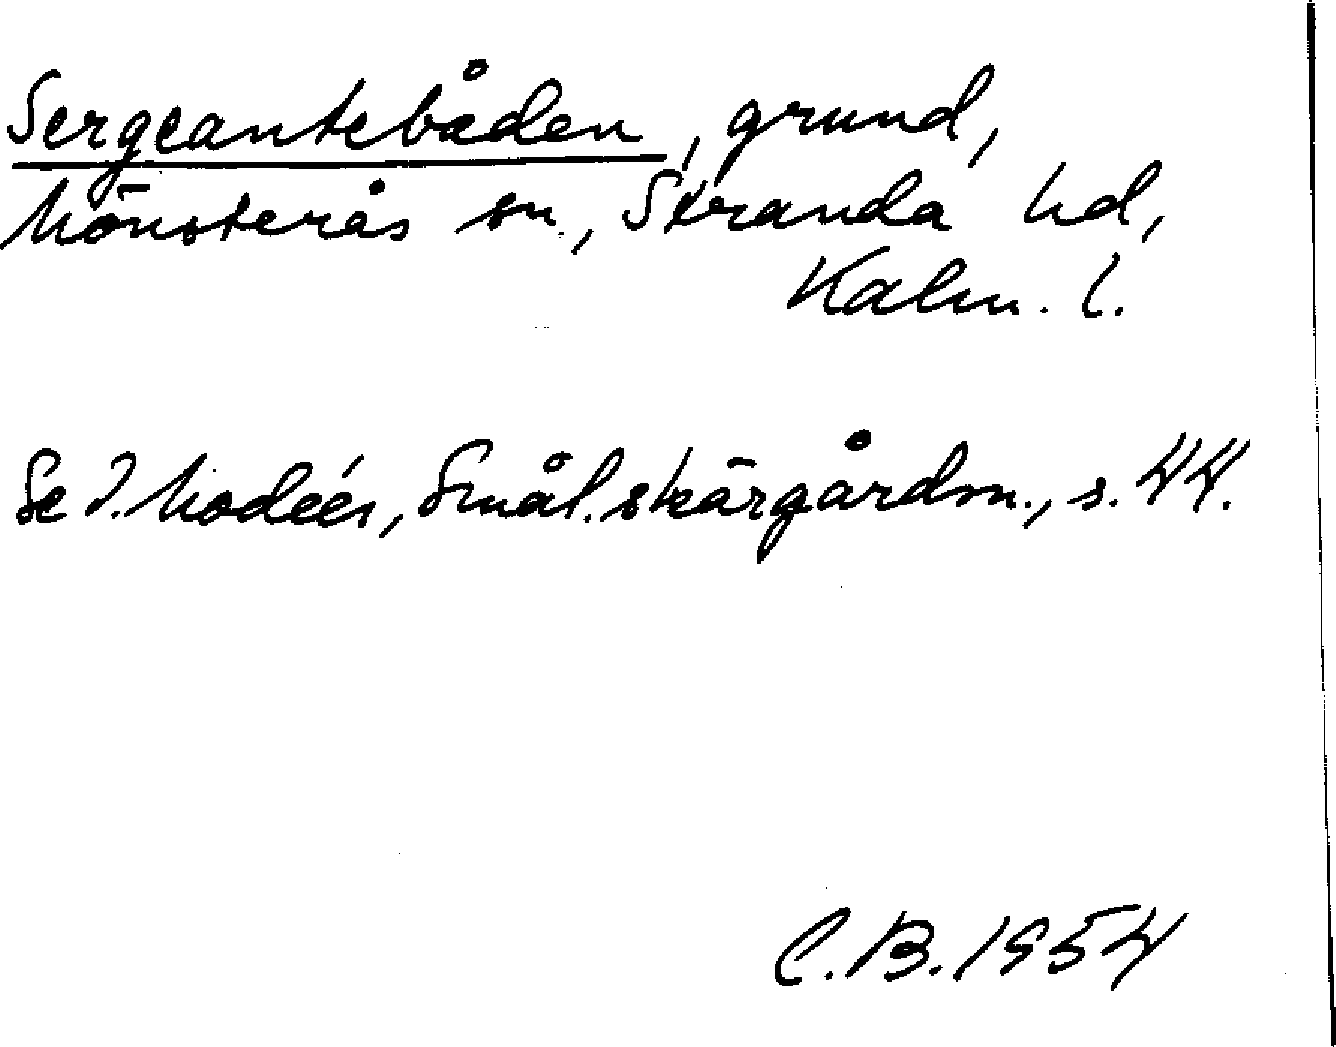 Sergeantebåden, grund,
Mönsterås sn., Stranda hd,
Kalm. l.
Se I. Modéer, Smål. skärgårdsn., s. 44.
C.B. 1954